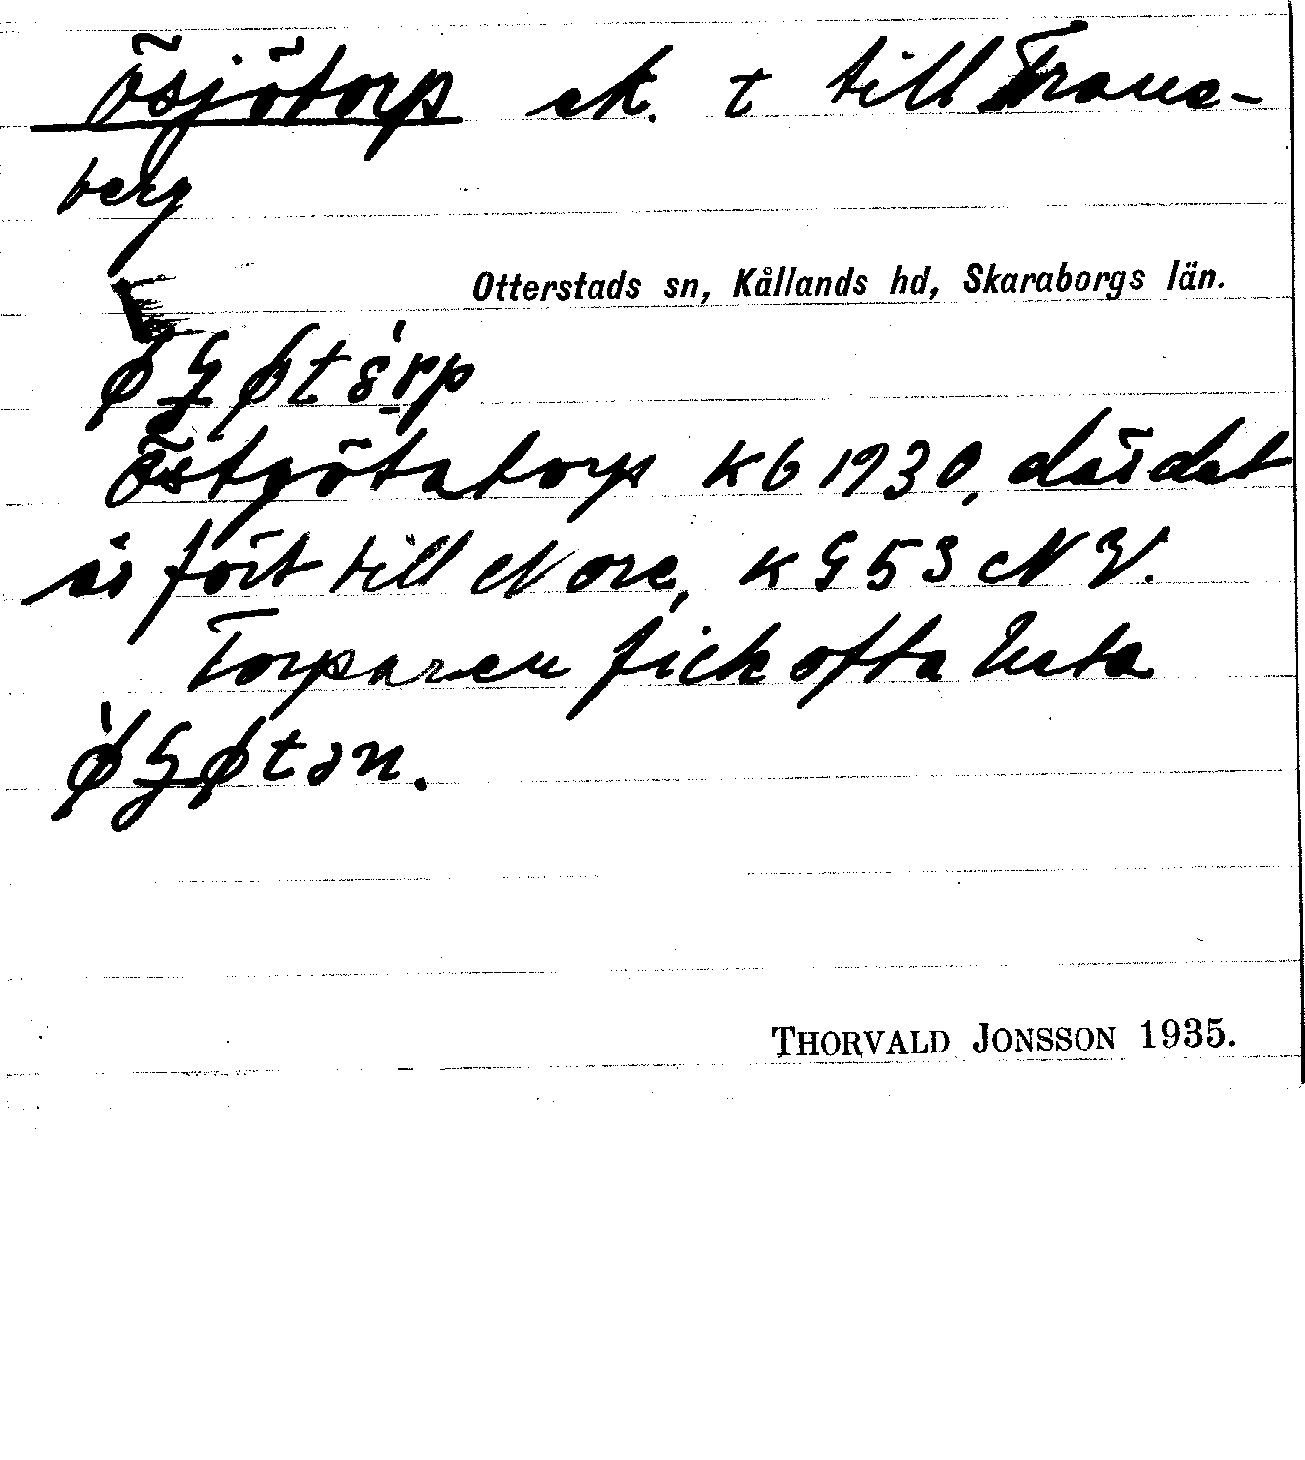 Ösjötorp ek. t till Trane-
berg
Otterstads sn, Kållands hd, Skaraborgs län.
Östgötatorp kb 1930, där det
är fört till Nore, k G53 NV.
Torparen fick ofta heta
THORVALD JONSSON 1935.